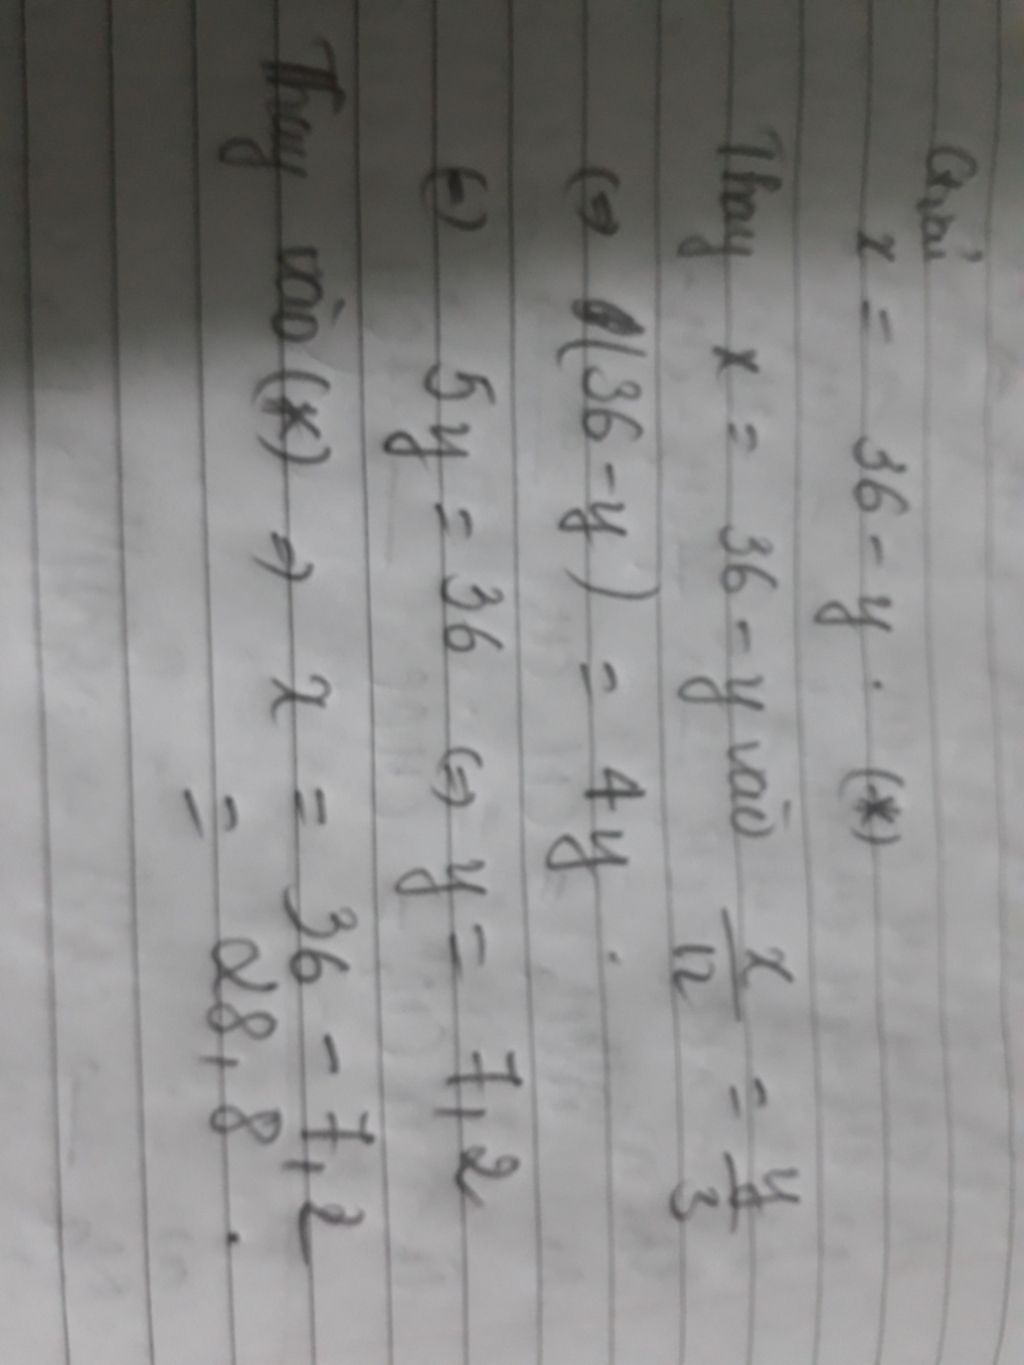 Giải
x = 36 - y. (*)
Thay x = 36 - y vào x/12 = y/3
(=) (36 - y) = 4y.
(=) 5y = 36 (=) y = 7,2
Thay vào (*) => x = 36 - 7,2
= 28,8.